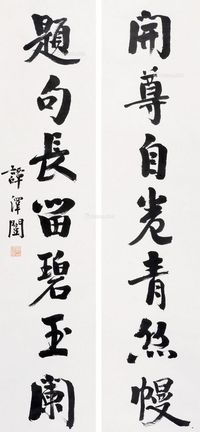 開尊自卷青絲幔
題句長留碧玉闌
譚澤闓